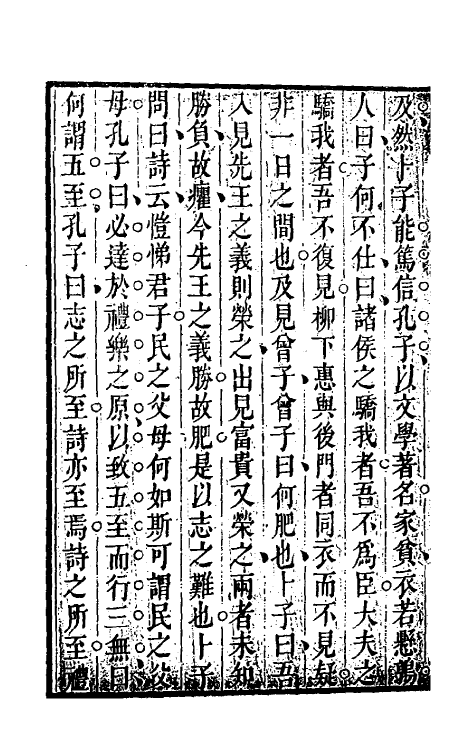 及然卜子能篤信孔子以文學著名家貧衣若懸鶉
人曰子何不仕曰諸侯之驕我者吾不爲臣大夫之
驕我者吾不復見柳下惠與後門者同衣而不見疑
非一日之間也及見曾子曾子曰何肥也卜子曰吾
入見先王之義則榮之出見富貴又榮之兩者未知
勝負故癯今先王之義勝故肥是以志之難也卜子
問曰詩云愷悌君子民之父母何如斯可謂民之父
母孔子曰必達於禮樂之原以致五至而行三無曰
何謂五至孔子曰志之所至詩亦至焉詩之所至禮